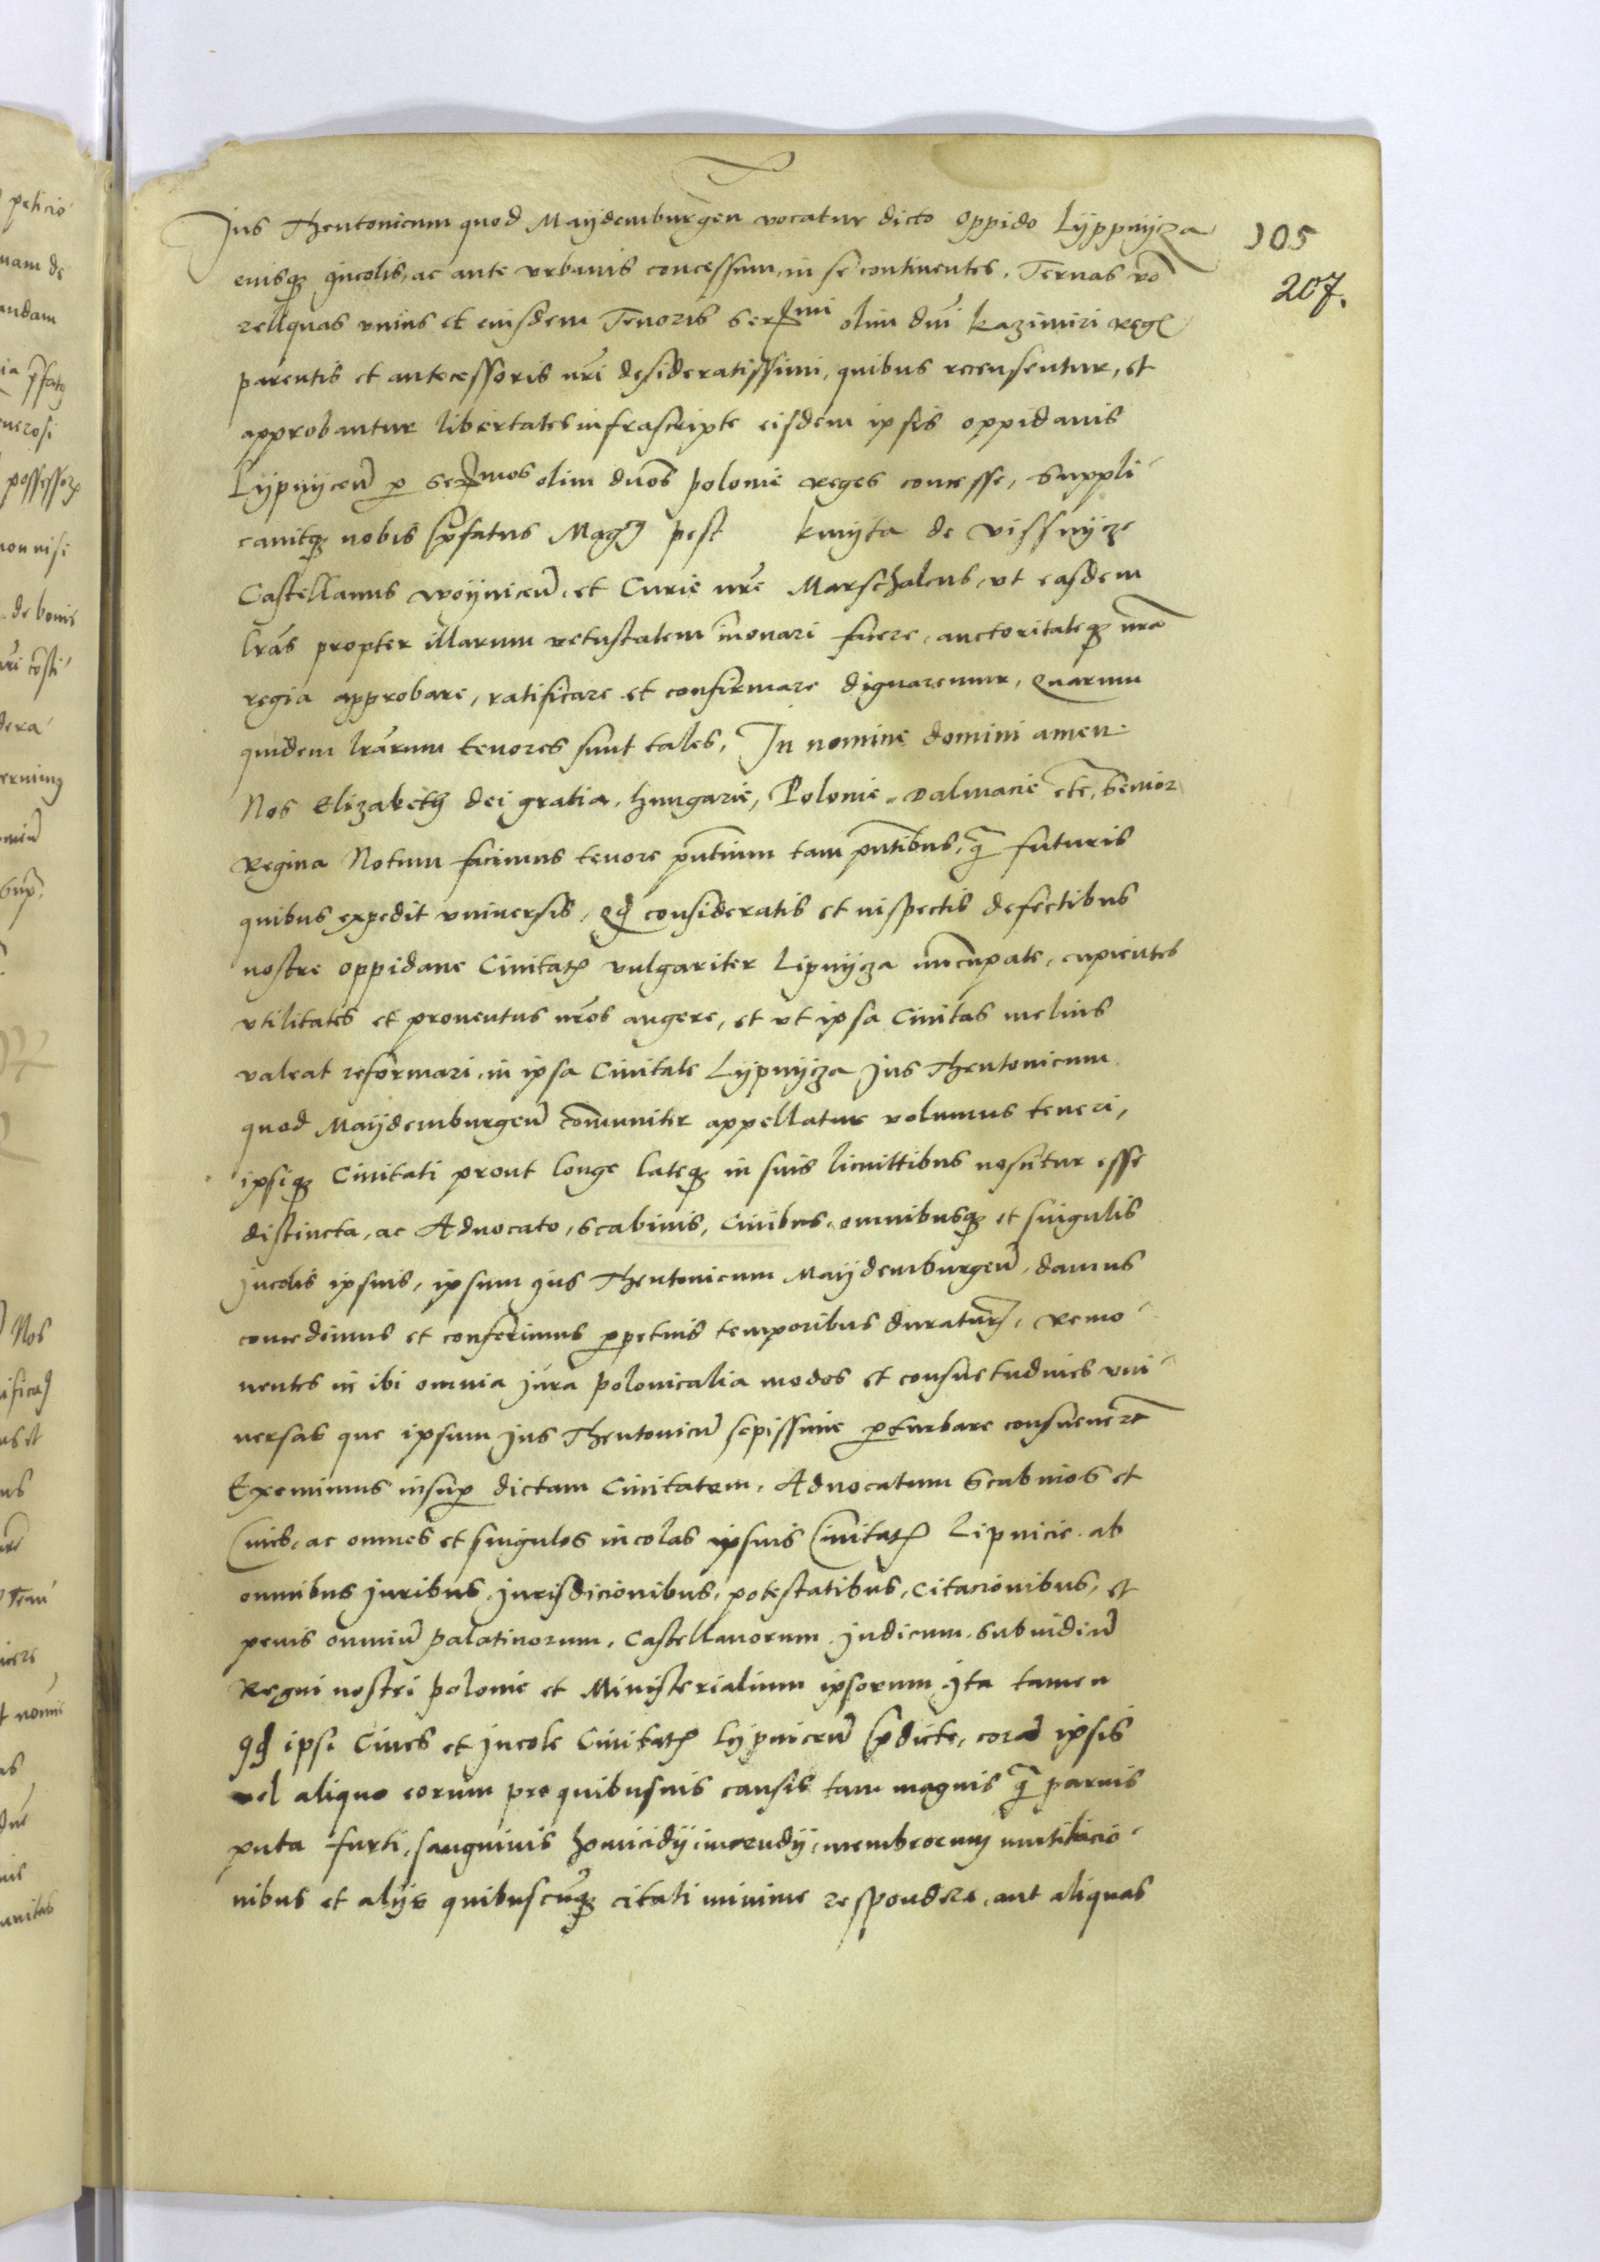 Jus Theutonicum quod Maÿdemburgeñ vocatur dicto oppido Lÿppnÿcza
eiusq₃ Incolis, ac ante vrbanis concessum, in se continentes. Ternas vo͂
reliquas vnius et eiusdem Tenoris Ser͂mi olim dn͂i Kazimiri Reg̃
parentis et antecessoris nr͂i desideratissimi, quibus recensentur, et
approbantur libertates infrascripte eisdem ipsis oppidanis
Lÿpnÿceñ p Ser͂mos olim dn͂os Polonie Reges concesse, Suppli-
cauitq₃ nobis p͂fatus Mag͂ Pe Kmÿta de Vissnÿcze
Castellanus Woÿniceñ, et Curie nr͂e Marschalcus, vt easdem
lr͂as propter illarum vetustatem innouari facere, auctoritateq₃ nr͂a
regia approbare, ratificare et confirmare dignaremur, Quarum
quidem lr͂arum tenores sunt tales, In nomine domini amen
Nos Elizabeth dei gratia, Hungarie, Polonie, Dalmacie etc͂, Senior
Regina Notum facimus tenore pn͂tium tam pn͂tibus, q̃ futuris
quibus expedit vniuersis, qd consideratis et inspectis defectibus
nostre oppidane Ciuitat͂ vulgariter Lipnÿcza nu͂cupate, cupientes
vtilitates et prouentus nr͂os augere, et vt ipsa Ciuitas melius
valeat reformari, in ipsa Ciuitate Lÿpnÿcza Jus Theutonicum
quod Maÿdemburgeñ com͂uniter appellatur volumus teneri,
ipsiq₃ Ciuitati prout longe lateq₃ in suis limittibus nosc͂itur esse
distincta, ac Aduocato, Scabinis, Ciuibus, omnibusq₃ et singulis
Incolis ipsius, ipsum Jus Theutonicum Maÿdemburgeñ, damus
concedimus et conferimus p͂petuis temporibus duratur͂, Remo-
uentes in ibi omnia Jura Polonicalia modos et consuetudines vni-
uersas que ipsum Jus Theutonicu͂ sepissime p͂turbare consueuer͂t
Eximimus insup͂ dictam Ciuitatem, Aduocatum Scabinos et
Ciues, ac omnes et singulos incolas ipsius Ciuitat͂ Lipnicie, ab
omnibus Juribus, Jurisdicionibus, potestatibus, Citacionibus, et
penis omniu͂ Palatinorum, Castellanorum, Judicum, Subiudicu͂
Regni nostri Polonie et Ministerialium ipsorum, Ita tamen
qd ipsi Ciues et Incole Ciuitat͂ Lÿpniceñ p͂dicte, cora͂ ipsis
vel aliquo eorum pro quibusuis causis tam magnis q̃ paruis
puta furti, sanguinis homicidÿ, incendÿ, membrorum mutilacio-
nibus et alÿs quibuscu͂q₃ citati minime respondere, aut aliquas
105
207.